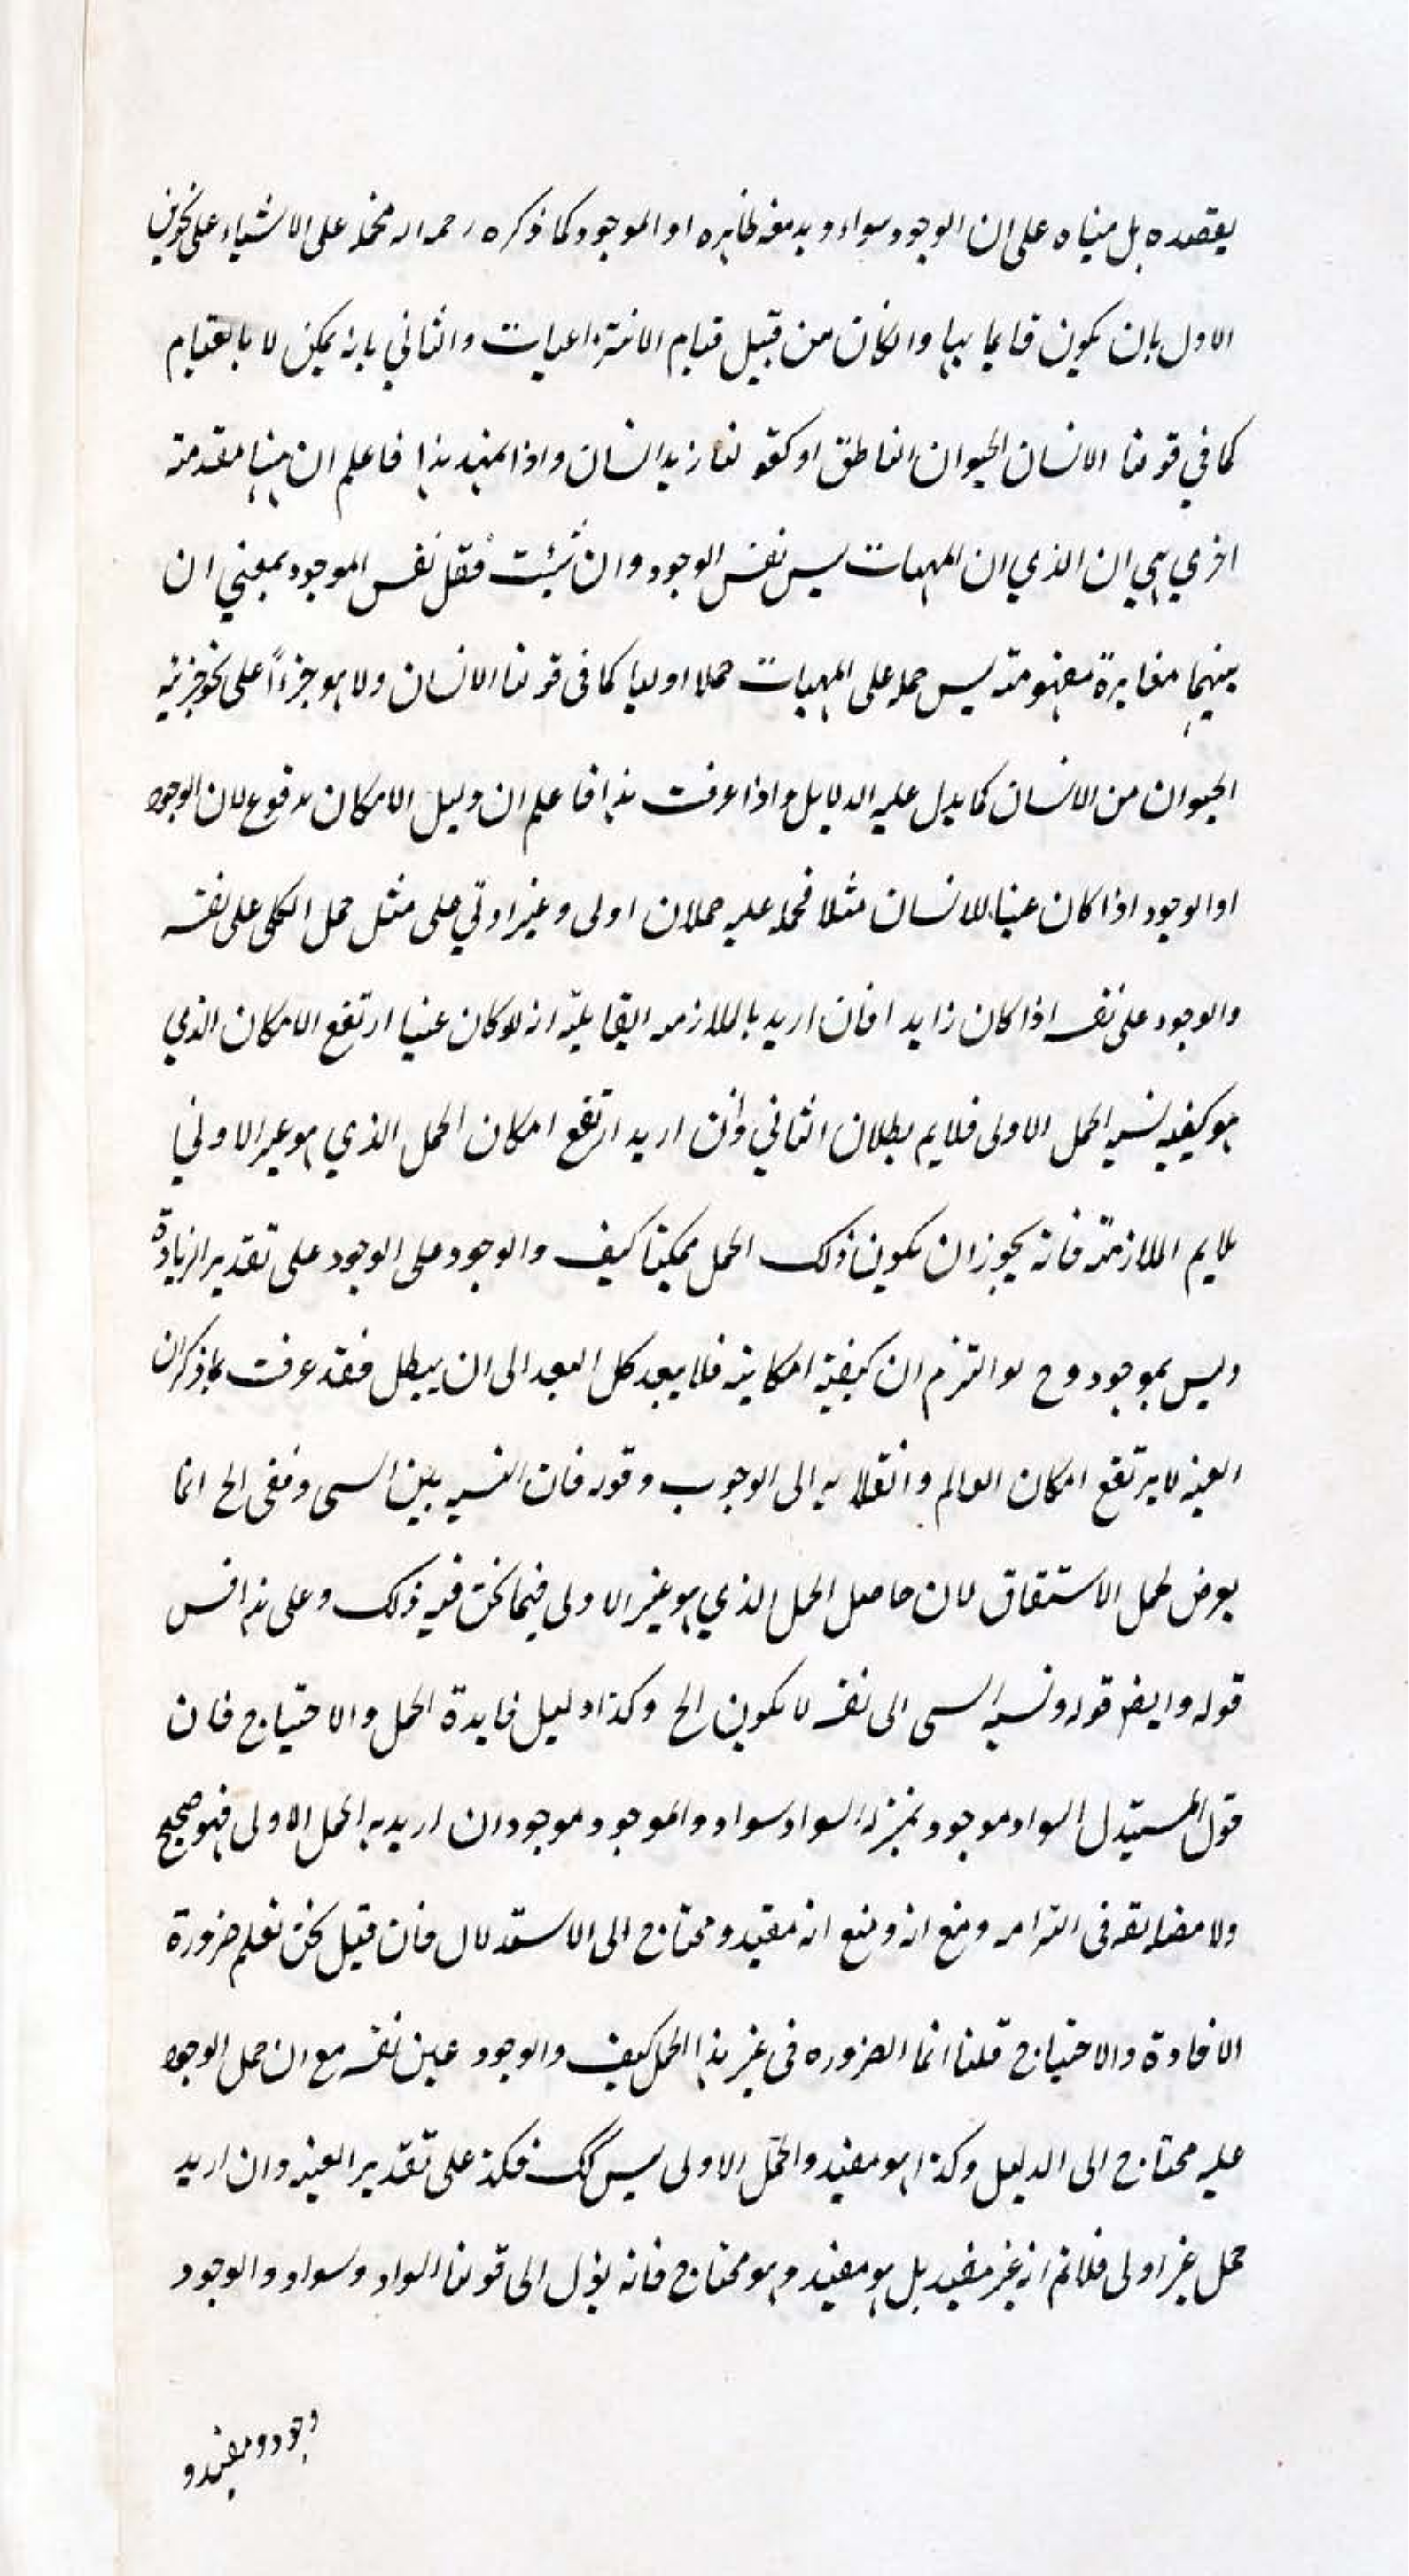 يقصده بل مبناه على ان الوجود سواء اريد معه ظاهره او الموجود كما ذكره رحمه الله فحمله على الاشياء على نحوين
الاول بان يكون قايما بها وانكان من قبيل قيام الانتزاعيات والثاني بانه يمكن لا بالقيام
كما في قولنا الانسان الحيوان الناطق او كقولنا زيد انسان واذا تمهد هذا فاعلم ان هنا مقدمته
اخري هي ان الذي ان المهيات ليس نفس الوجود وان شئت فقل نفس الموجود بمعني ان
بينهما مغايرة مفهومته ليس حمله على المهيات حملا اوليا كما في قولنا الانسان ولا هو جزءاً على نحو جزئيه
الحيوان من الانسان كما يدل عليه الدلايل واذا عرفت هذا فاعلم ان دليل الامكان مدفوع لان الوجود
او الوجود اذا كان عينا للانسان مثلا فحمله عليه حملان اولى وغير اولي على مثل حمل الكلى على نفسه
والوجود على نفسه اذا كان زايدا فان اريد بالملازمه القايليّه انه لو كان عينا ارتفع الامكان الذي
هو كيفيه نسبه الحمل الاولى فلايم بطلان الثاني وان اريد ارتفع امكان الحمل الذي هو غير الاولي
بلايم الملازمته فانه يجوز ان يكون ذلك الحمل ممكنا كيف والوجود على الوجود على تقدير الزيادة
وليس بموجود وح لو التزم ان كيفية امكانيته فلا يبعد كل البعد الى ان يبطل فقد عرفت بما ذكر ان
العينه لا يرتفع امكان العالم وانقلابه الى الوجوب وقوله فان النسبه بين الشى ونفسه الخ انما
يعرض لحمل الاشتقاق لان حاصل الحمل الذي هو غير الاولى فيما نحن فيه ذلك وعلى هذا فقس
قوله وايضر قوله ونسبه الشى الى نفسه لا يكون الخ وكذا دليل فايدة الحمل والاحتياج فان
قول المستدل السواد موجود بمنزله السواد سواد والموجود موجود ان اريد به الحمل الاولى فهو صحيح
ولا مضايقه فى التزامه ومنع انه ومنع انه مقيد ومحتاج الى الاستدلال فان قيل نحن نعلم ضرورة
الافادة والاحتياج قلنا انما الضروره فى غير هذا الحمل كيف والوجود عين نفسه مع ان حمل الوجود
عليه محتاج الى الدليل وكذا هو مفيد والحمل الاولى ليس كك فكذ على تقدير العينه وان اريد
حمل غير اولى فلانم انه غير مفيد بل هو مفيد وهو محتاج فانه يؤل الى قولنا السواد وسواد والوجود
وجود ومفيد و